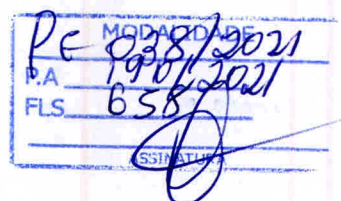 MODALIDADE
PE 038/2021
P.A 190/2021
FLS 658
ASSINATURA